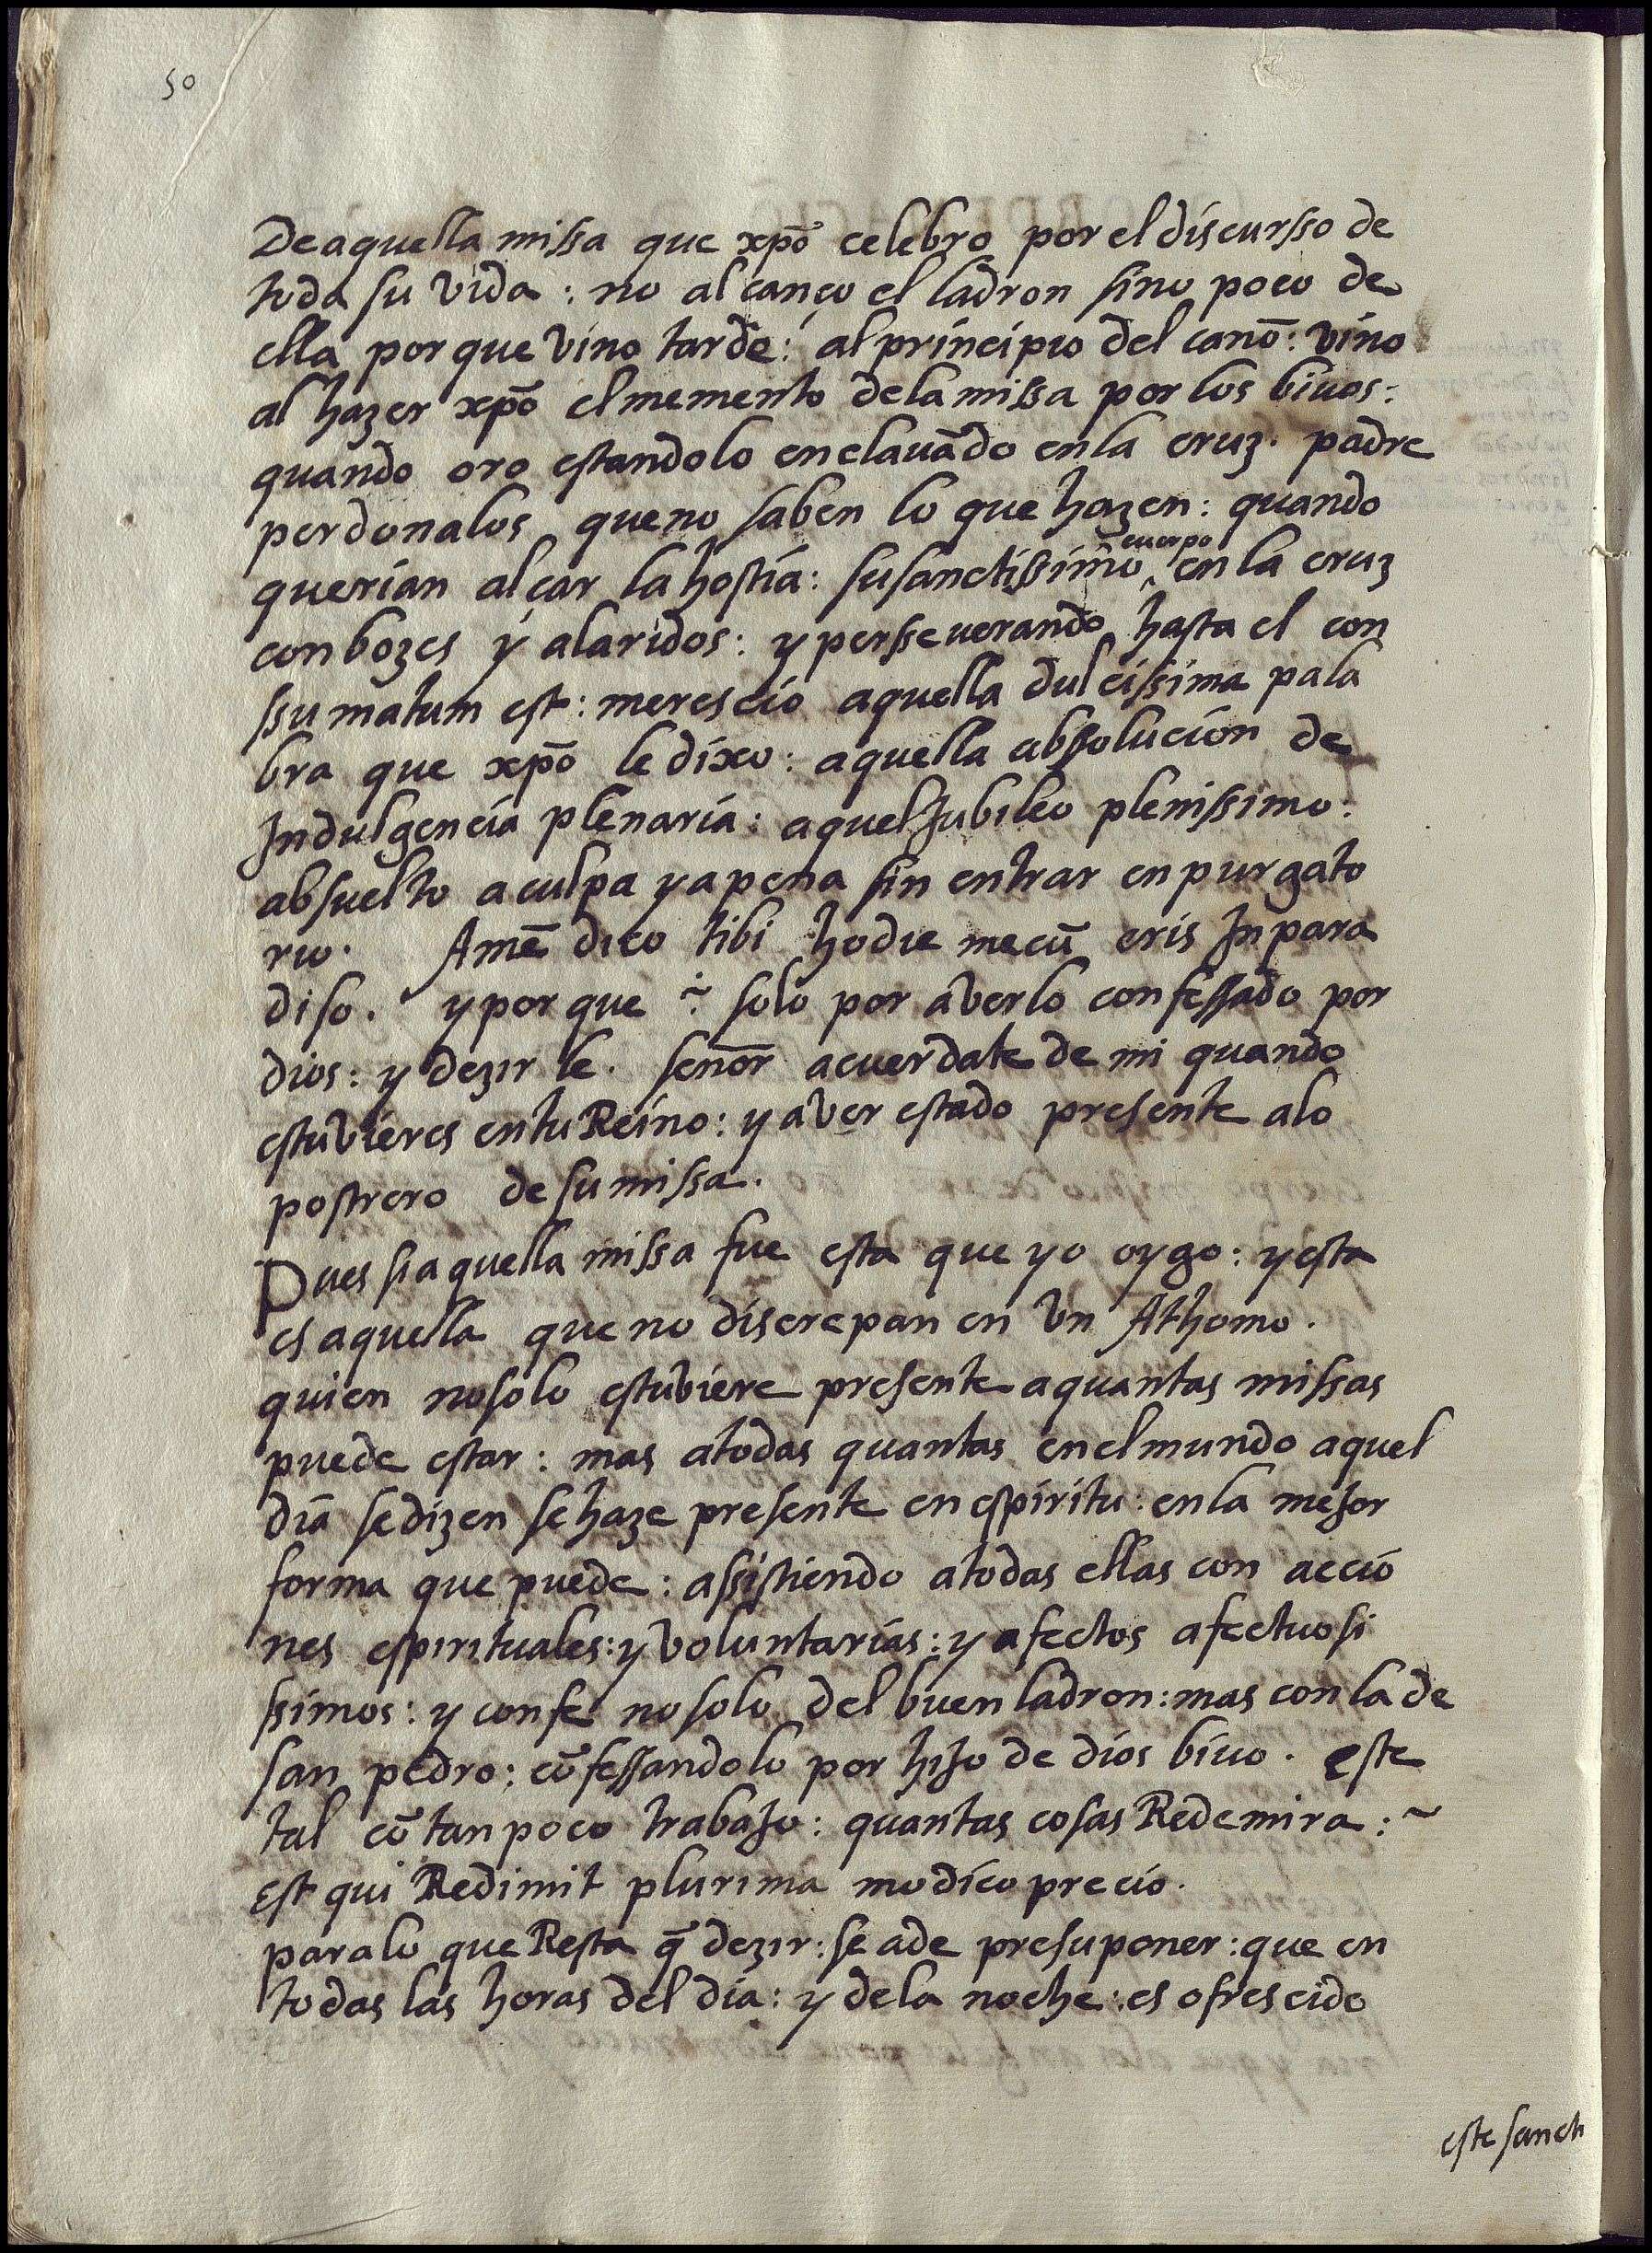 50
De aquella missa que xpō celebro por el discursso de
toda su vida : no alcanço el ladron sino poco de
ella por que vino tarde : al principio del canō : vino
al hazer xpō el memento de la missa por los biuos :
quando oro estandolo enclauādo en la cruz . padre
perdonalos que no saben lo que hazen : quando
cuerpo
querian alçar la hostia : su sanctissimo ^ en la cruz
con bozes y alaridos : y persseuerando hasta el con
ssumatum est : merescio aquella dulcissima pala
bra que xpō le dixo : aquella absolucion de
Indulgencia plenaria : aquel Jubileo plenissimo :
absuelto a culpa y a pena sin entrar en purgato
rio . Amē dico tibi hodie mecū eris In para
diso . y por que ~ solo por averlo confessado por
dios : y dezir le . señor acuerdate de mi quando
estuvieres en tu Reino : y aver estado presente a lo
postrero de su missa .
Pues si aquella missa fue esta que yo oygo : y esta
es aquella que no discrepan en vn Athomo .
quien no solo estuviere presente a quantas missas
puede estar : mas a todas quantas en el mundo aquel
dia se dizen se haze presente en espiritu : en la mejor
forma que puede : assistiendo a todas ellas con accio
nes espirituales : y voluntarias : y afectos afectuosi
ssimos : y con fe no solo del buen ladron : mas con la de
san pedro : cōfessandolo por hijo de dios biuo . este
tal cō tan poco trabajo : quantas cosas Redemira : ~
Est qui Redimit plurima modico precio .
para lo que Resta q̄ dezir : se a de presuponer : que en
todas las horas del dia : y de la noche : es ofrescido
este sancto